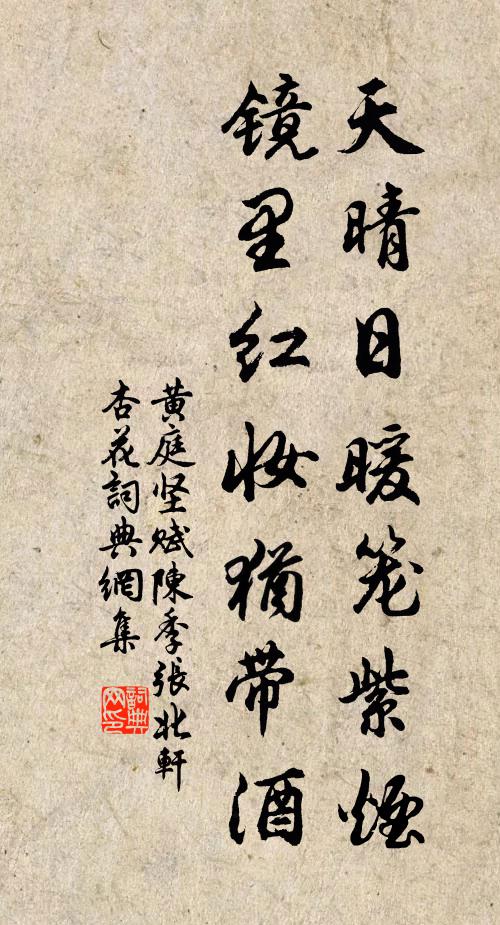 天晴日暖笼紫烟
镜里红妆犹带酒
黄庭坚赋陳季張北軒
杏花詞典網集
詞典
网印